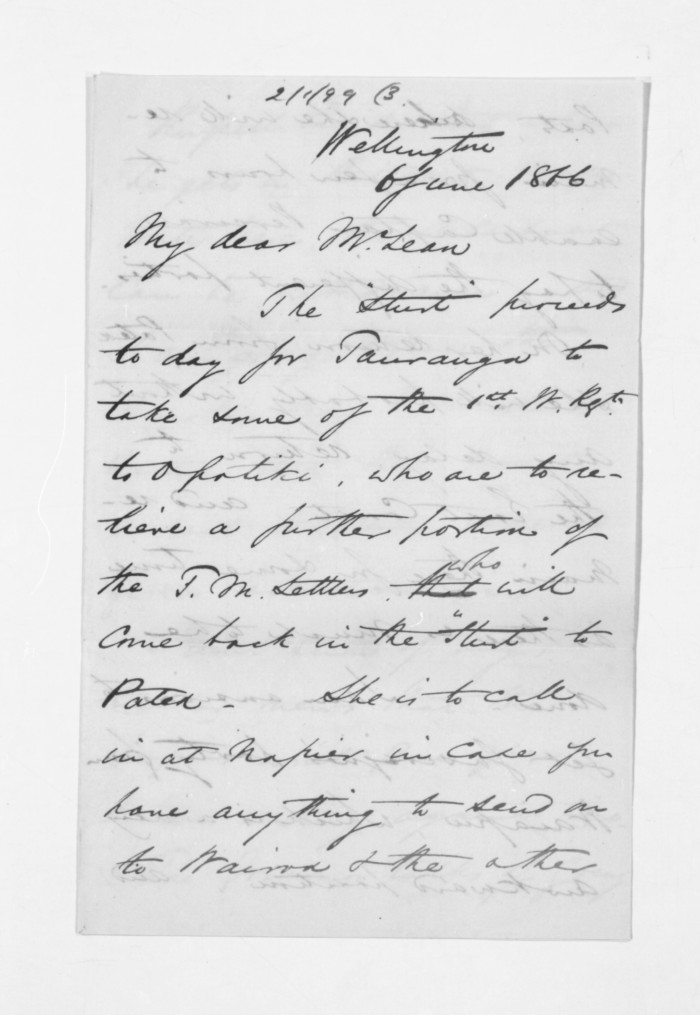 2/1/99 (3
Wellington
6 June 1866
My dear McLean
The "Sturt" proceeds
to day for Tauranga to
take some of the 1st. W. Regt.
to Opotiki, who are to re-
lieve a further portion of
the T. M. Settlers. that who will
come back in the "Sturt" to
Patea - She is to call
in at Napier in case you
have anything to send on
to Wairoa & the other